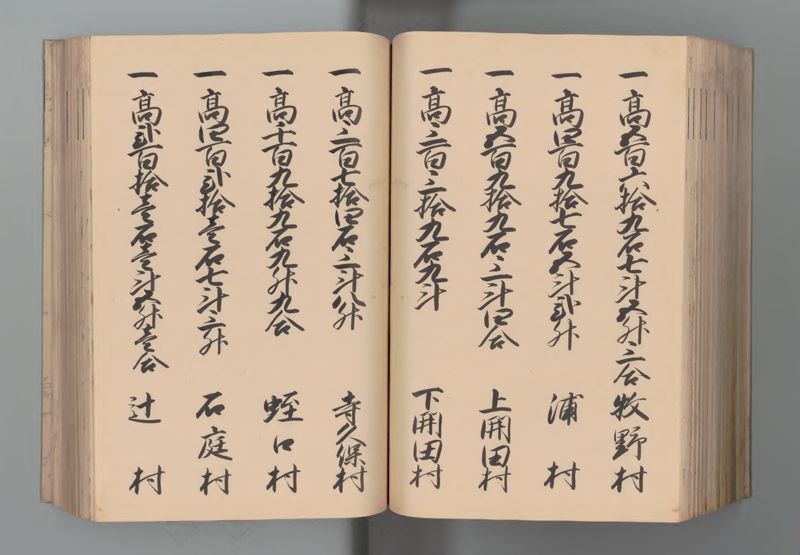 一高五百六拾九石七斗五升三合 牧野村
一高四百九拾七石五斗弐升 浦村
一高五百九拾九石三斗四合 上開田村
一高三百三拾九石九斗 下開田村
一高三百七拾四石三斗八升 寺久保村
一高千百九拾九石九升九合 蛭口村
一高四百弐拾壱石七斗三升 石庭村
一高弐百拾壱石壱斗五升壱合 辻村